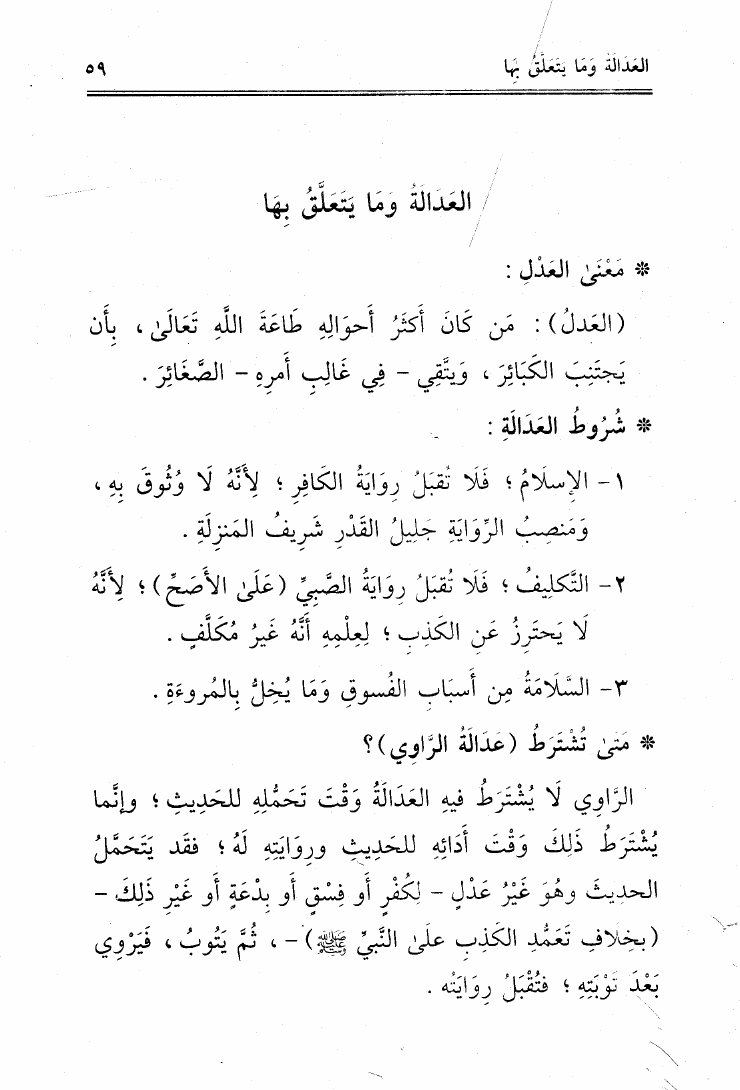 العَدَالَةُ وَمَا يَتَعَلَّقُ بِهَا ٥٩
العَدَالَةُ وَمَا يَتَعَلَّقُ بِهَا
* مَعْنَىٰ العَدْلِ :
(العَدلُ): مَن كَانَ أَكثَرُ أَحوَالِهِ طَاعَةَ اللَّهِ تَعَالَىٰ ، بِأَن
يَجتَنِبَ الكَبَائِرَ ، وَيتَّقِي – فِي غَالِبِ أَمرِهِ – الصَّغَائِرَ .
* شُرُوطُ العَدَالَةِ :
١– الإِسلَامُ ؛ فَلَا تُقبَلُ رِوَايَةُ الكَافِرِ ؛ لِأَنَّهُ لَا وُثُوقَ بِهِ ،
وَمَنصِبُ الرِّوَايَةِ جَلِيلُ القَدْرِ شَرِيفُ المَنزِلَةِ .
٢– التَّكلِيفُ ؛ فَلَا تُقبَلُ رِوَايَةُ الصَّبِيِّ (عَلَىٰ الأَصَحِّ) ؛ لِأَنَّهُ
لَا يَحتَرِزُ عَنِ الكَذِبِ ؛ لِعِلْمِهِ أَنَّهُ غَيرُ مُكَلَّفٍ .
٣– السَّلَامَةُ مِن أَسبَابِ الفُسوقِ وَمَا يُخِلُّ بِالمُروءَةِ .
* مَتىٰ تُشْتَرَطُ (عَدَالَةُ الرَّاوِي)؟
الرَّاوِي لَا يُشْتَرَطُ فيهِ العَدَالَةُ وَقْتَ تَحَمُّلِهِ للحَدِيثِ ؛ وإنَّما
يُشْتَرَطُ ذَلِكَ وَقْتَ أَدَائِهِ للحَدِيثِ وروَايَتِهِ لَهُ ؛ فقَد يَتَحَمَّلُ
الحديثَ وهُوَ غَيْرُ عَدْلٍ – لِكُفْرٍ أَو فِسْقٍ أَو بِدْعَةٍ أَو غَيْرِ ذَلِكَ –
(بخِلَافِ تَعَمُّدِ الكَذِبِ علىٰ النَّبيِّ ﷺ) –، ثُمَّ يَتُوبُ ، فَيَرْوِي
بَعْدَ تَوْبَتِهِ ؛ فتُقْبَلُ رِوَايَتُه .